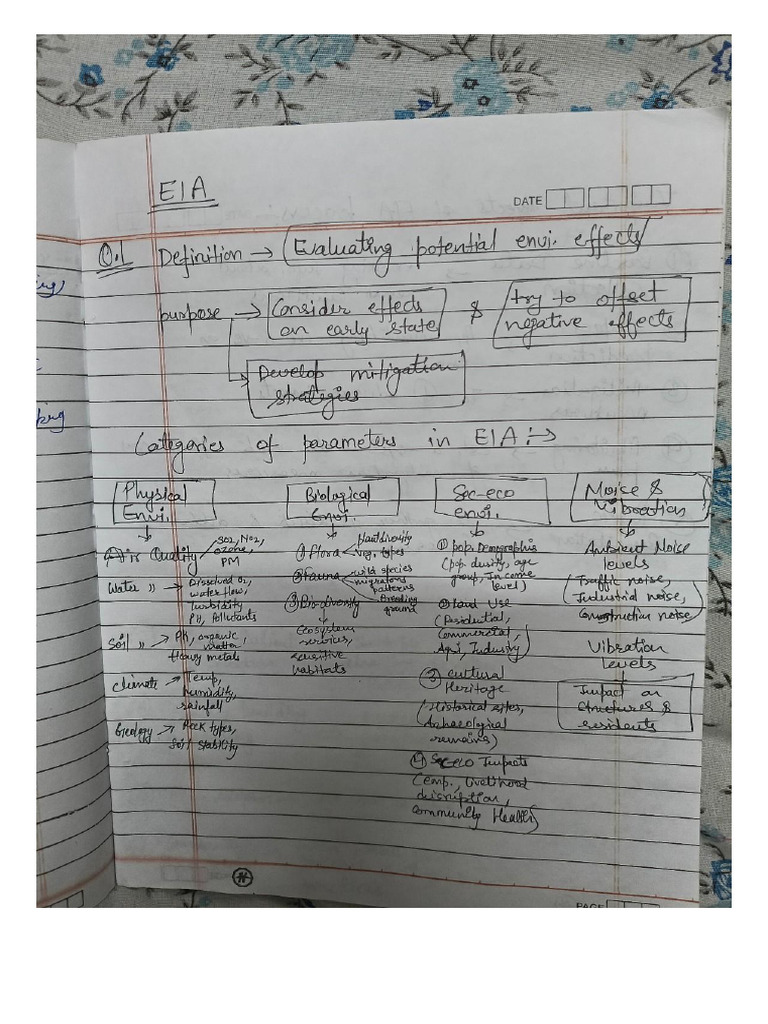 EIA
DATE
Q.1 Definition → Evaluating potential envi. effects
purpose → Consider effects on early state & try to offset negative effects
Develop mitigation strategies
Categories of parameters in EIA :→
Physical Envi.
Air Quality
SO2, NO2,
Ozone,
PM
Water " → Dissolved O2,
water flow,
turbidity
PH, Pollutants
Soil " → PH, organic
matter
Heavy metals
Climate → Temp,
humidity,
rainfall
Geology → Rock types,
Soil stability
Biological Envi.
① Flora
Plant diversity
Veg. types
② Fauna
wild species
migrations
patterns
Breeding
ground
③ Bio-diversity
Ecosystem
services,
sensitive
habitats
Soc-eco envi.
① pop. Demographis
(pop dusity, age
group, Income
level)
② Land Use
(Residential,
Commercial,
Agri, Industry)
③ Cultural
Heritage
(Historical sites,
Archaeological
remains)
④ Soc eco Impacts
(emp., livelihood
discription,
Community Health)
Noise & Vibration
Ambient Noise
levels
(Traffic noise,
Industrial noise,
Construction noise)
Vibration
levels
Impact on
structures &
residents
PAGE